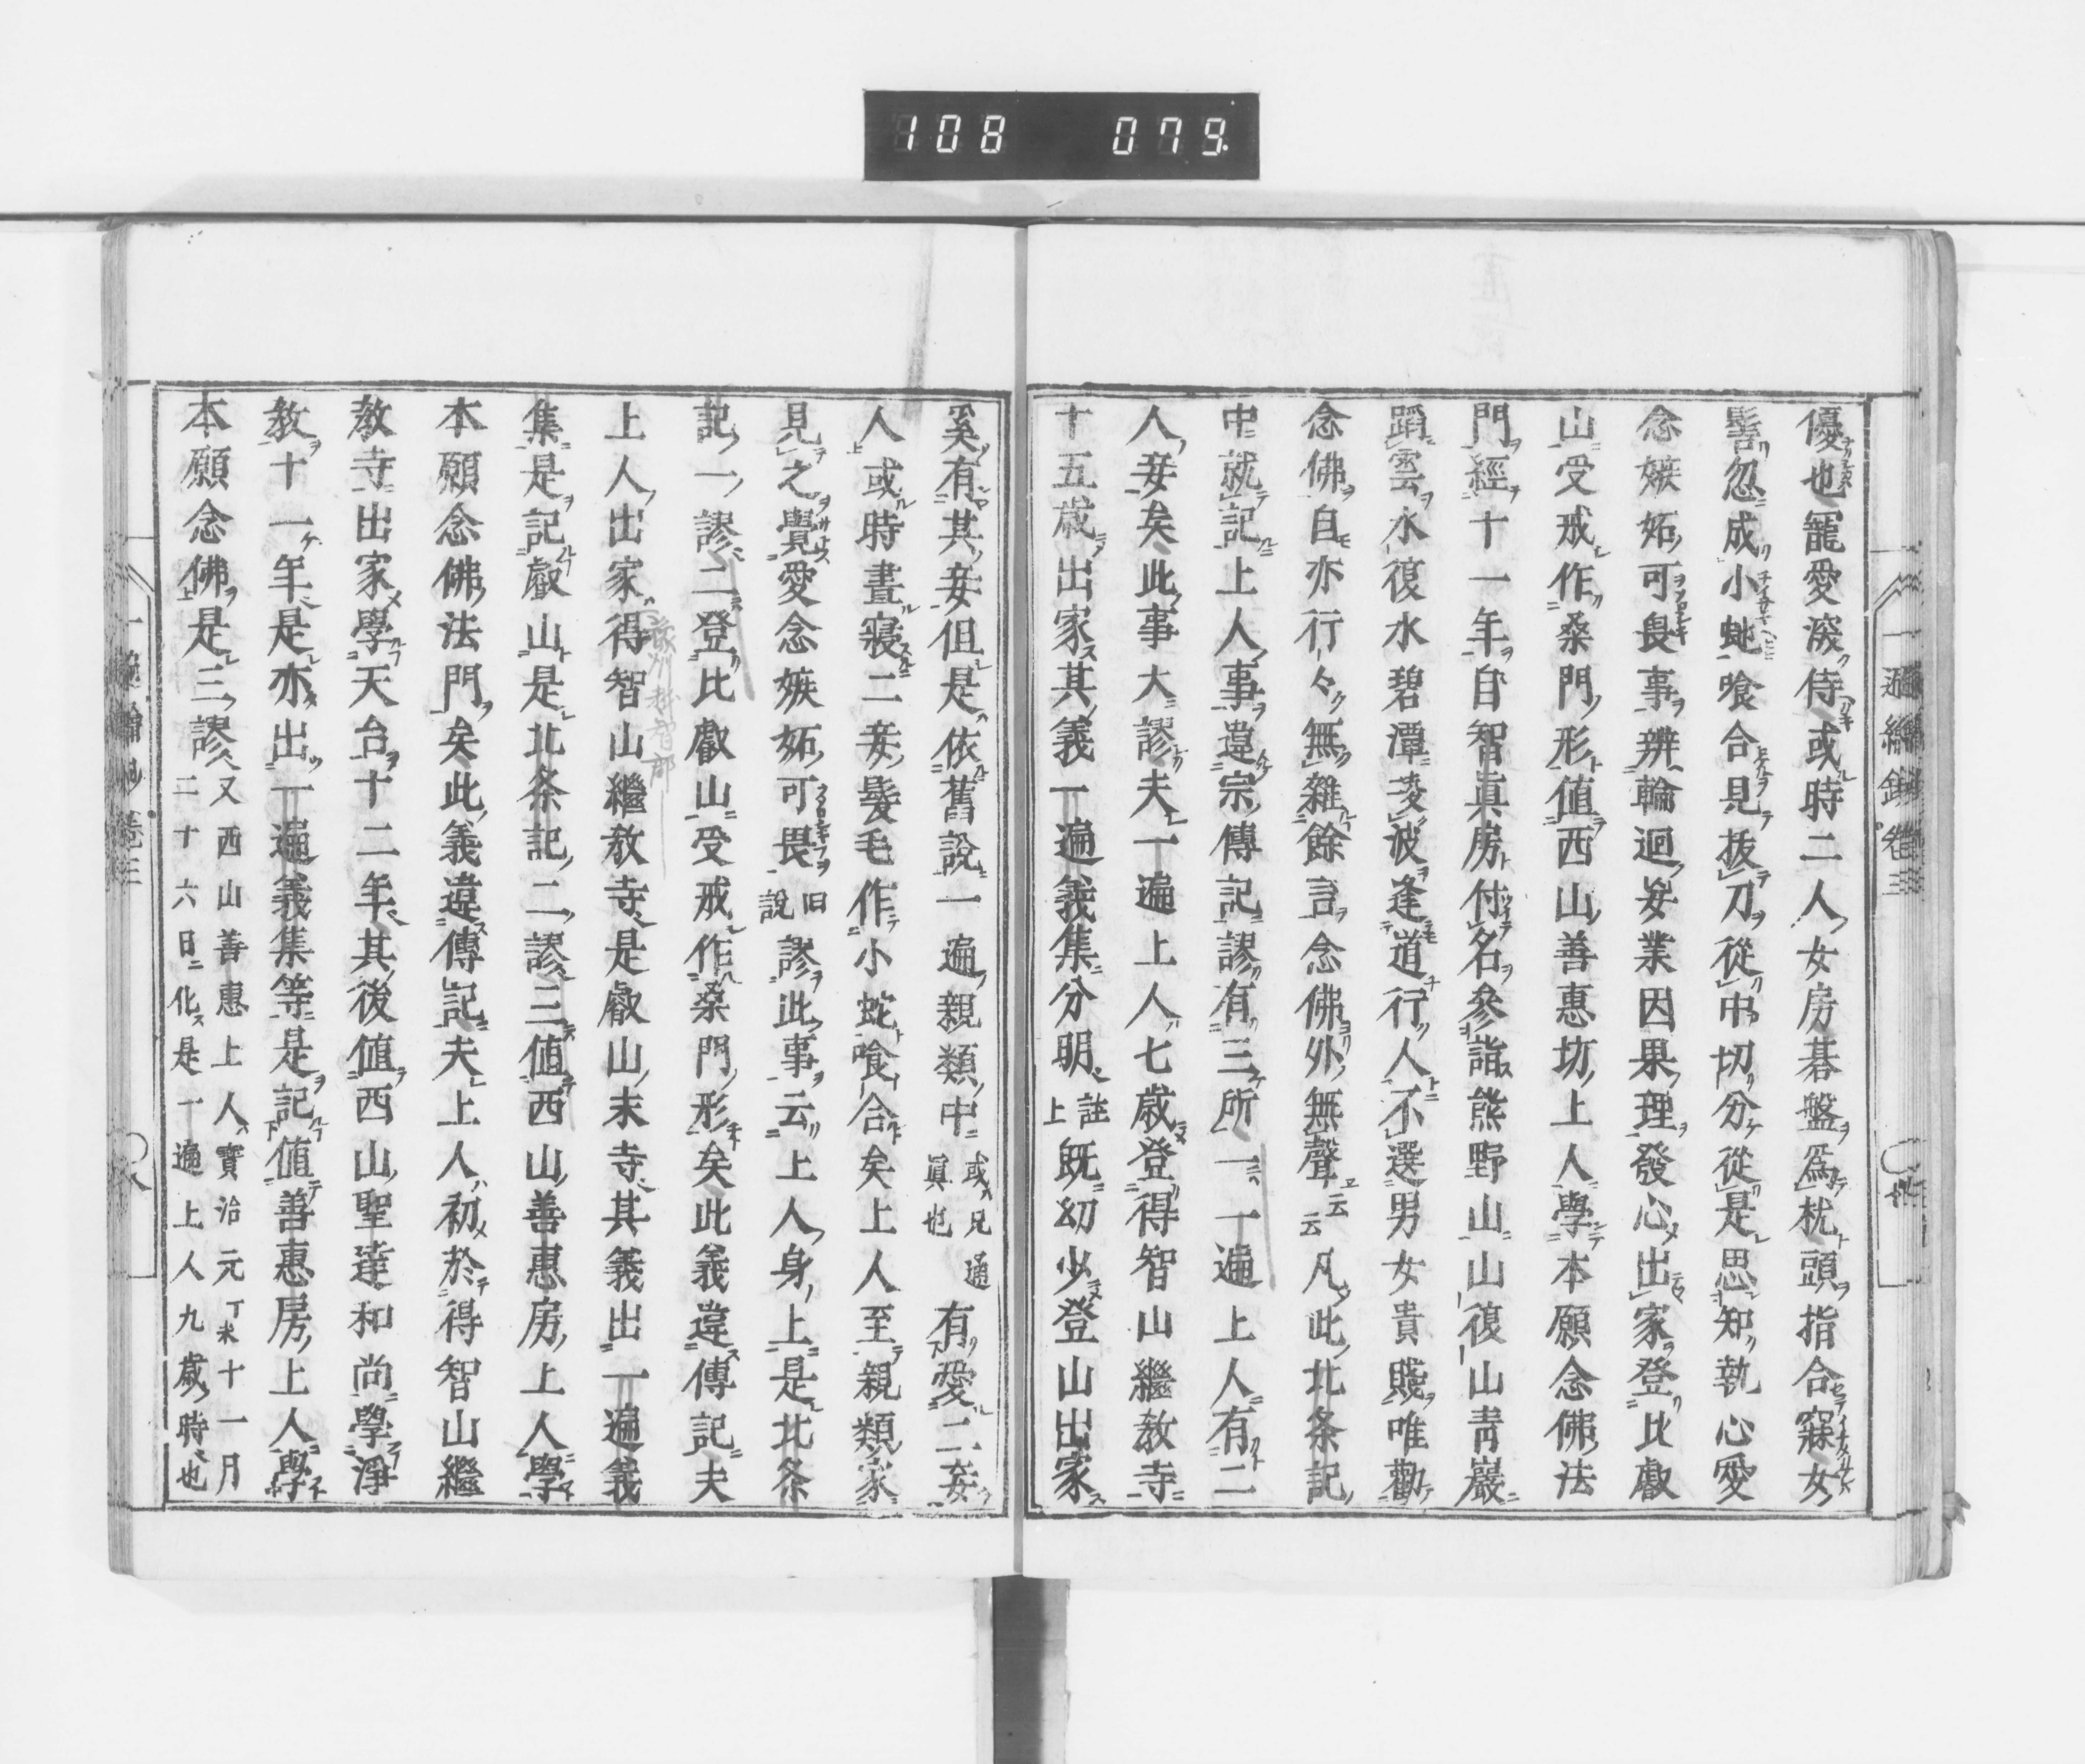 108 079
優也寵愛深侍或時二人女房碁盤爲枕頭指合寐女
髻忽成小虵喰合見抜刀從中切分從是思知執心愛
念嫉妬可畏事辨輪迴妄業因果理發心出家登比叡
山受戒作桑門形値西山善惠坊上人學本願念佛法
門經十一年自智眞房付名參詣熊野山山復山青巖
蹈雲水復水碧潭凌波逢道行人不選男女貴賤唯勸
念佛自亦行々無雜餘言念佛外無聲云云凡此北条記
中就記上人事違宗傳記謬有三所一一遍上人有二
人妾矣此事大謬夫一遍上人七歳登得智山繼教寺
十五歳出家其義一遍義集分明註上既幼少登山出家
奚有其妾但是依舊說一遍親類中或兄通眞也有愛二妾
人或時晝寢二妾髮毛作小蛇喰合矣上人至親類家
見之覺愛念嫉妬可畏旧說謬此事云上人身上是北条
記一謬二登比叡山受戒作桑門形矣此義違傳記夫
上人出家得智山繼教寺是叡山末寺其義出一遍義
集是記叡山是北条記二謬三値西山善惠房上人學
本願念佛法門矣此義違傳記夫上人初於得智山繼
教寺出家學天台十二年其後値西山聖達和尚學淨
教十一年是亦出一遍義集等是記値善惠房上人學
本願念佛是三謬又西山善惠上人寳治元丁未十一月二十六日化是一遍上人九歳時也